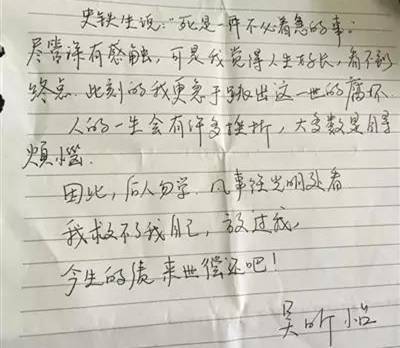 史铁生说："死是一件不必着急的事；
尽管深有感触，可是我觉得人生好长，看不到
终点．此刻的我更急于出这一世的腐坏．
人的一生会有许多挫折，大多数是自寻
烦恼．
因此，后人勿学．凡事往光明处看
我救不了我自己，放过我，
今生的债来世偿还吧！
吴昕怡